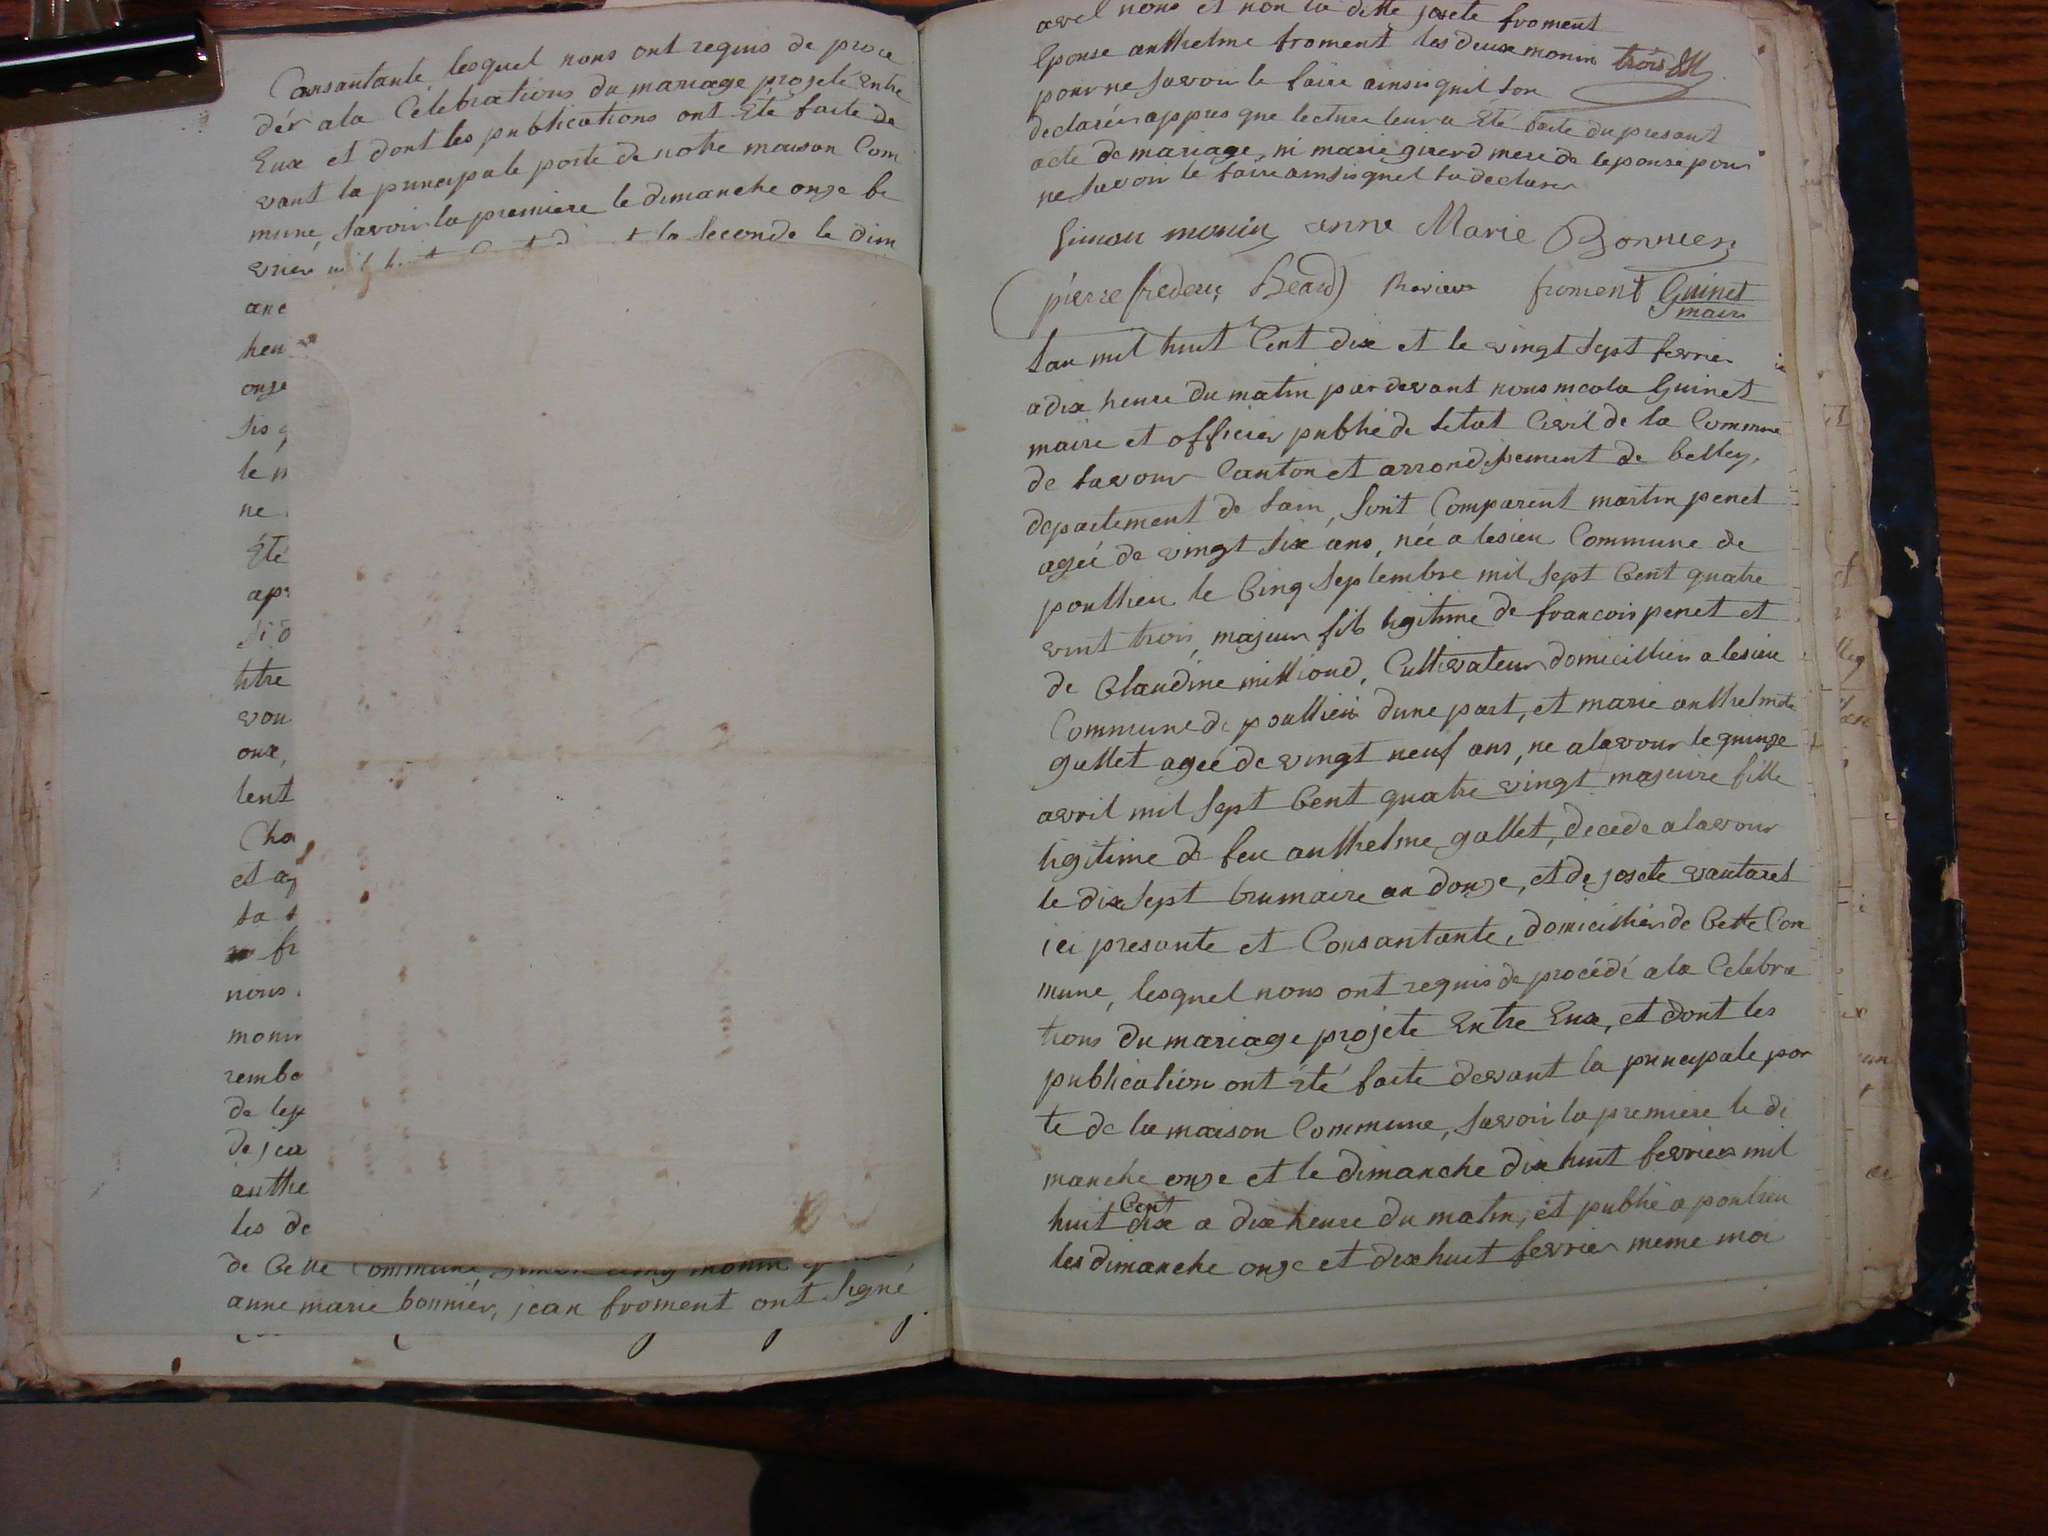 Consantante, lesquel nous ont requis de proce
der ala Célébrations du mariage projeté Entre
Eux et dont les publications ont Eté faite de
vant la principale porte de notre maison Com
mune, savoir la premiere le dimanche onze fe
vrier mil huit Cent dix et la seconde le dim
anc
heu
onze
sis
le m
ne
Eté
apr
si d
titre
vou
oux,
lent
Cha
et ag
la
fr
nous
monin
rembo
de lep
de jea
anthe
les de
de Cette Commune, monin
anne marie bonnier, jean froment ont signé
avec nous et non la ditte josete froment
Epouse anthelme froment les deux monin trois
pour ne savoir le faire ainsi quil son
declarér appres que lecture leur a Eté faite du presant
acte de mariage, ni marie girerd mere de lepouse pour
ne savoir le faire ainsi quel la declarer
Simon monin anne Marie Bonnier
pierre frederic Beard froment Guinet
maire
lan mil huit Cent dix et le vingt sept fevrier
a dix heure du matin par devant nous nicola Guinet
maire et officier publié de letat Civil de la Commune
de lavour Canton et arrondissement de belley,
departement de lain, sont Comparent martin penet
ageé de vingt six ans, née a lesieu Commune de
poullieu le Cinq septembre mil sept Cent quatre
vint trois, majeur fils ligitime de francois penet et
de Claudine millioud, Cultivateur domicillier a lesieu
Commune de poullieu dune part, et marie anthelmete
gullet ageé de vingt neuf ans, ne a lavour le quinze
avril mil sept Cent quatre vingt majeure fille
ligitime de feu anthelme gullet, decede a lavour
le dix sept brumaire an douze, et de josete vantaret
ici presante et Consantante, domicilliér de Cette Com
mune, lesquel nous ont requis de procédé a la Celebra
tions du mariage projete Entre Eux, et dont les
publication ont Eté faite devant la principale por
te de la maison Commune, savoir la premiere le di
manche onze et le dimanche dix huit fevrier mil
huit Cent dix a dix heure du matin, et publié a poulieu
les dimanche onze et dix huit fevrier meme moi